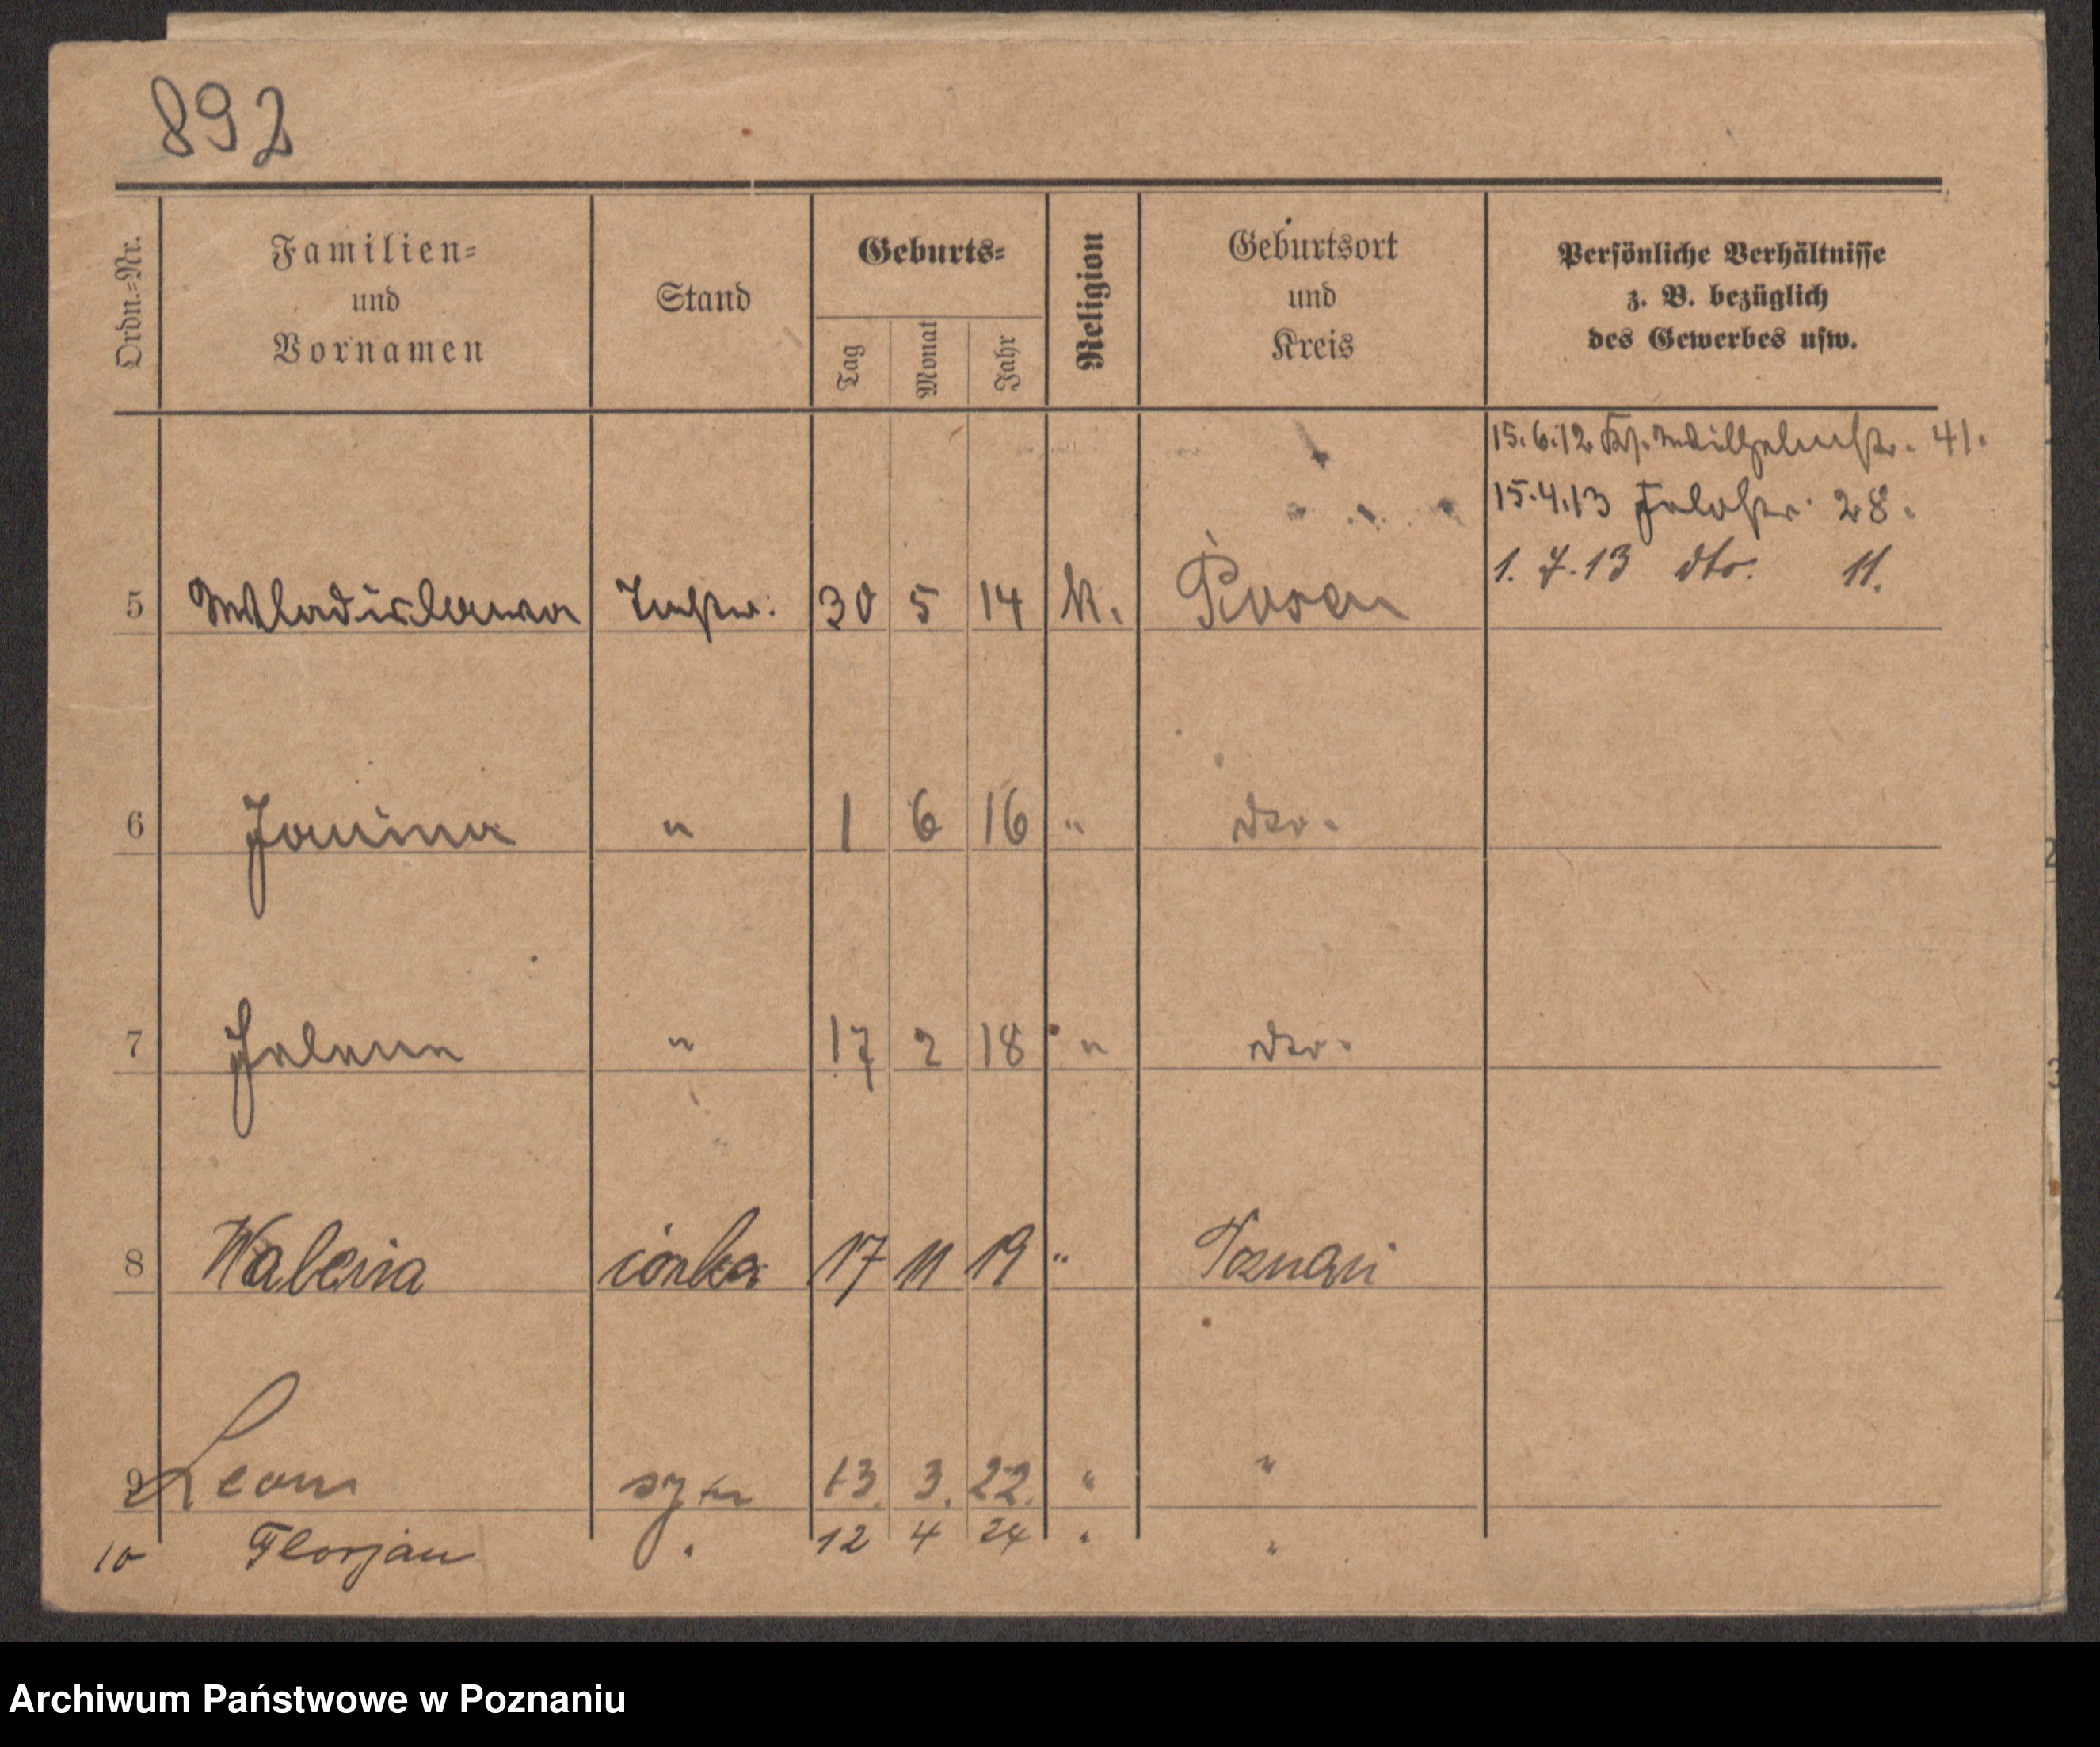 892
Ordn.=Nr. Familien= und Vornamen Stand Geburts= Tag Monat Jahr Religion Geburtsort und Kreis Persönliche Verhältnisse z. B. bezüglich des Gewerbes usw.
15.6.12 Kr. Wilhelmstr. 41.
15.4.13 Feldstr. 28.
1. 7. 13 dto. 11.
5 Wladislawa Tochter: 30 5 14 k. Posen
6 Janina " 1 6 16 " dto.
7 Helena " 17 2 18 " dto.
8 Waleria córka 17 11 19 " Poznań
9 Leon syn 13. 3. 22. " "
10 Florjan " 12 4 24 " "
Archiwum Państwowe w Poznaniu